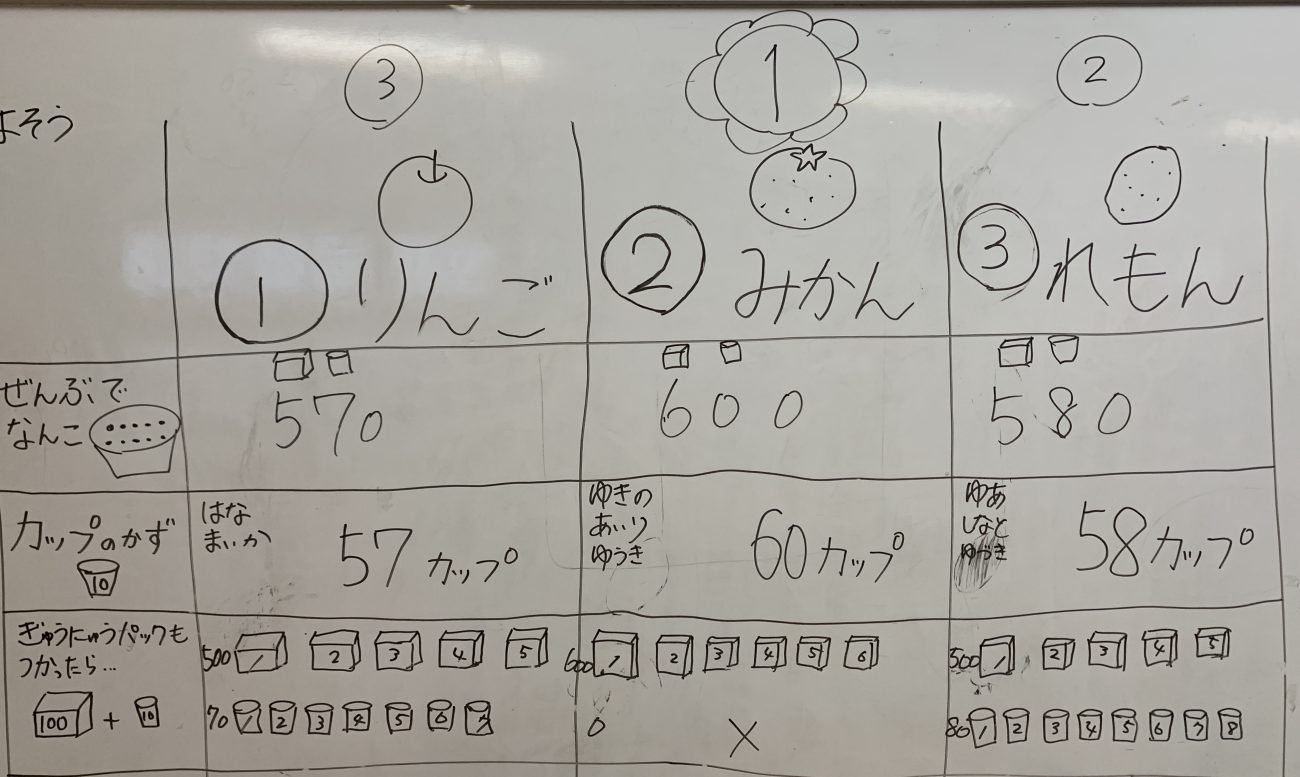 ③ 1 ②
よそう
① りんご ② みかん ③ れもん
ぜんぶで
なんこ
570 600 580
カップのかず
10
はな
まいか
57 カップ
ゆきの
あいり
ゆうき
60 カップ
ゆあ
しなと
58 カップ
ぎゅうにゅうパックも
つかったら...
100 + 10
500 1 2 3 4 5
600 1 2 3 4 5 6
500 1 2 3 4 5
70 1 2 3 4 5 6 7
0 ×
80 1 2 3 4 5 6 7 8